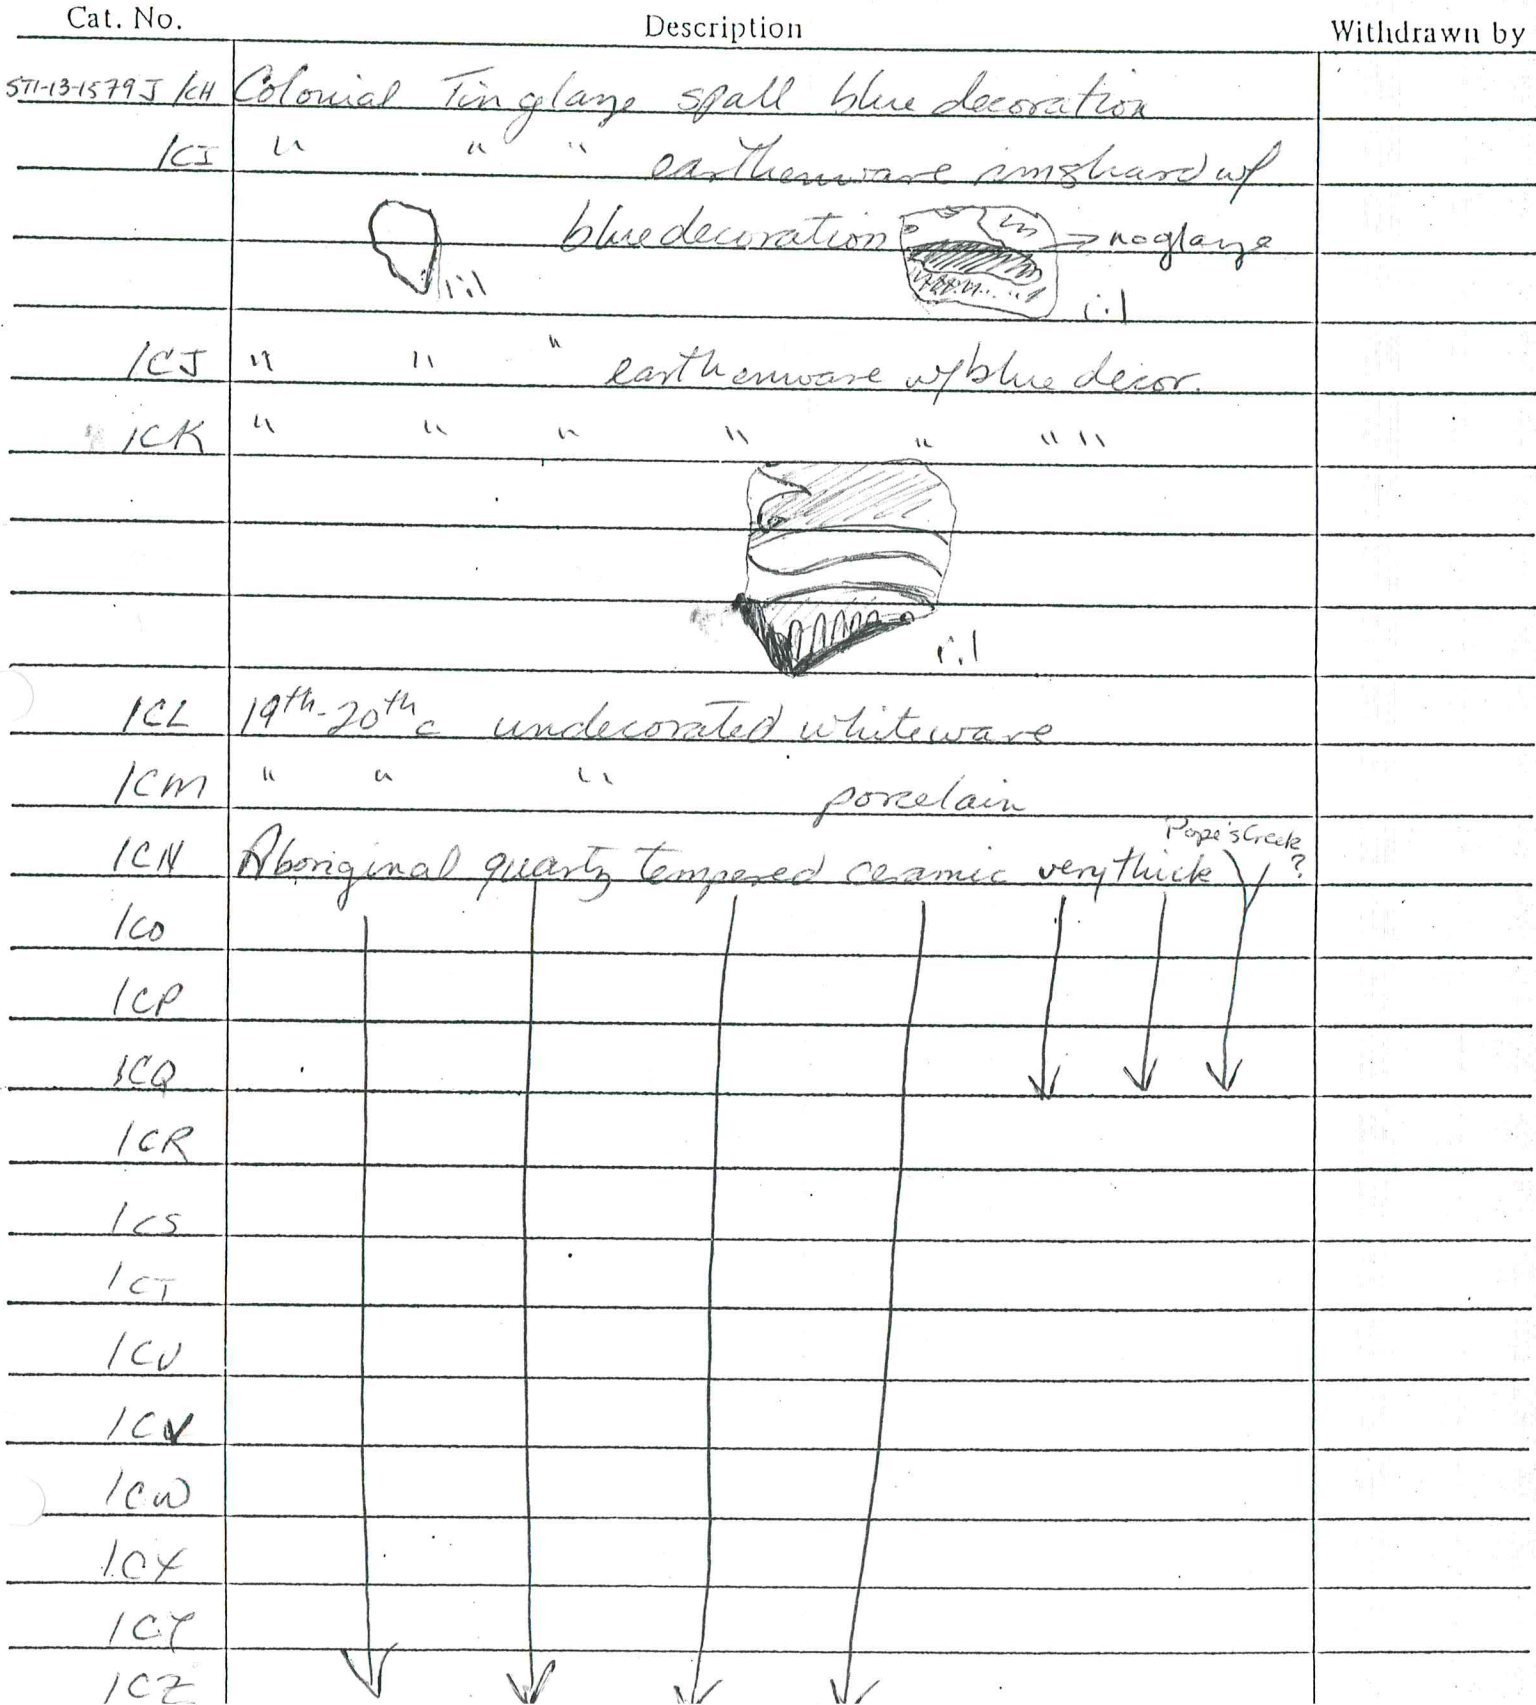 Cat. No. Description Withdrawn by
ST1-13-1579J /CH Colonial Tin glaze spall blue decoration
/CI " " " earthenware rimsherd w/
blue decoration → no glaze
1:1 1:1
/CJ " " " earthenware w/ blue decor.
/CK " " " " " " "
1:1
/CL 19th-20th c undecorated whiteware
/CM " " " porcelain
Pope's Creek
/CN Aboriginal quartz tempered ceramic very thick ?
/CO
/CP
/CQ
/CR
/CS
/CT
/CU
/CV
/CW
/CX
/CY
/CZ